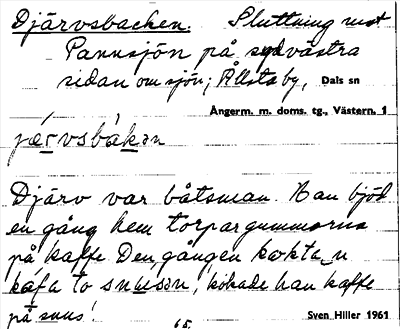 Djärvsbacken. Sluttning mot
Pannsjön på sydvästra
sidan om sjön; Ållsta by, Dals sn
Ångerm. m. doms. tg., Västern. 1
jærvsbakan
Djärv var båtsman. Han bjöd
en gång hem torpargummorna
på kaffe. Den gången kokta n
kafa to snusan, kokade han kaffe
på snus!
65. Sven Hiller 1961